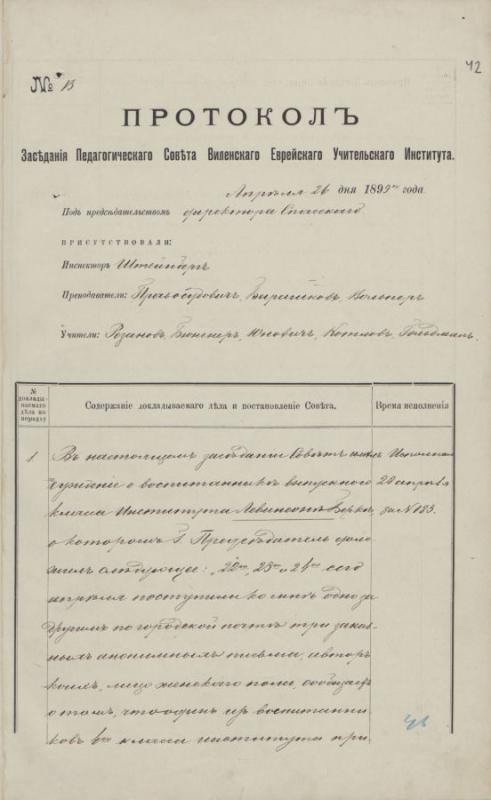 42
№ 13
ПРОТОКОЛЪ
Засѣданія Педагогическаго Совѣта Виленскаго Еврейскаго Учительскаго Института.
Апрѣля 26 дня 1899 года
Подъ предсѣдательствомъ директора Спасскаго
ПРИСУТСТВОВАЛИ:
Инспекторъ Штейнбергъ
Преподаватели: Вольперъ
Учители: Розановъ, Юновичъ, Котловъ, Гольдманъ.
№ доклады-
ваемаго
дѣла по
порядку
Содержаніе докладываемаго дѣла и постановленіе Совѣта.
Время исполненія
1
Въ настоящемъ засѣданіи Совѣтъ имѣлъ
сужденіе о воспитанникѣ выпускного
класса Института Левинсонѣ
о которомъ Г. Предсѣдатель доло-
жилъ слѣдующее: 23го и 24го сего
апрѣля поступили ко мнѣ одно за
другимъ по городской почтѣ три заказ-
ныхъ анонимныхъ письма, авторъ
коихъ, лицо женскаго пола, сообщаетъ
о томъ, что одинъ изъ воспитанни-
ковъ класса института при
28 апрѣля
за № 183.